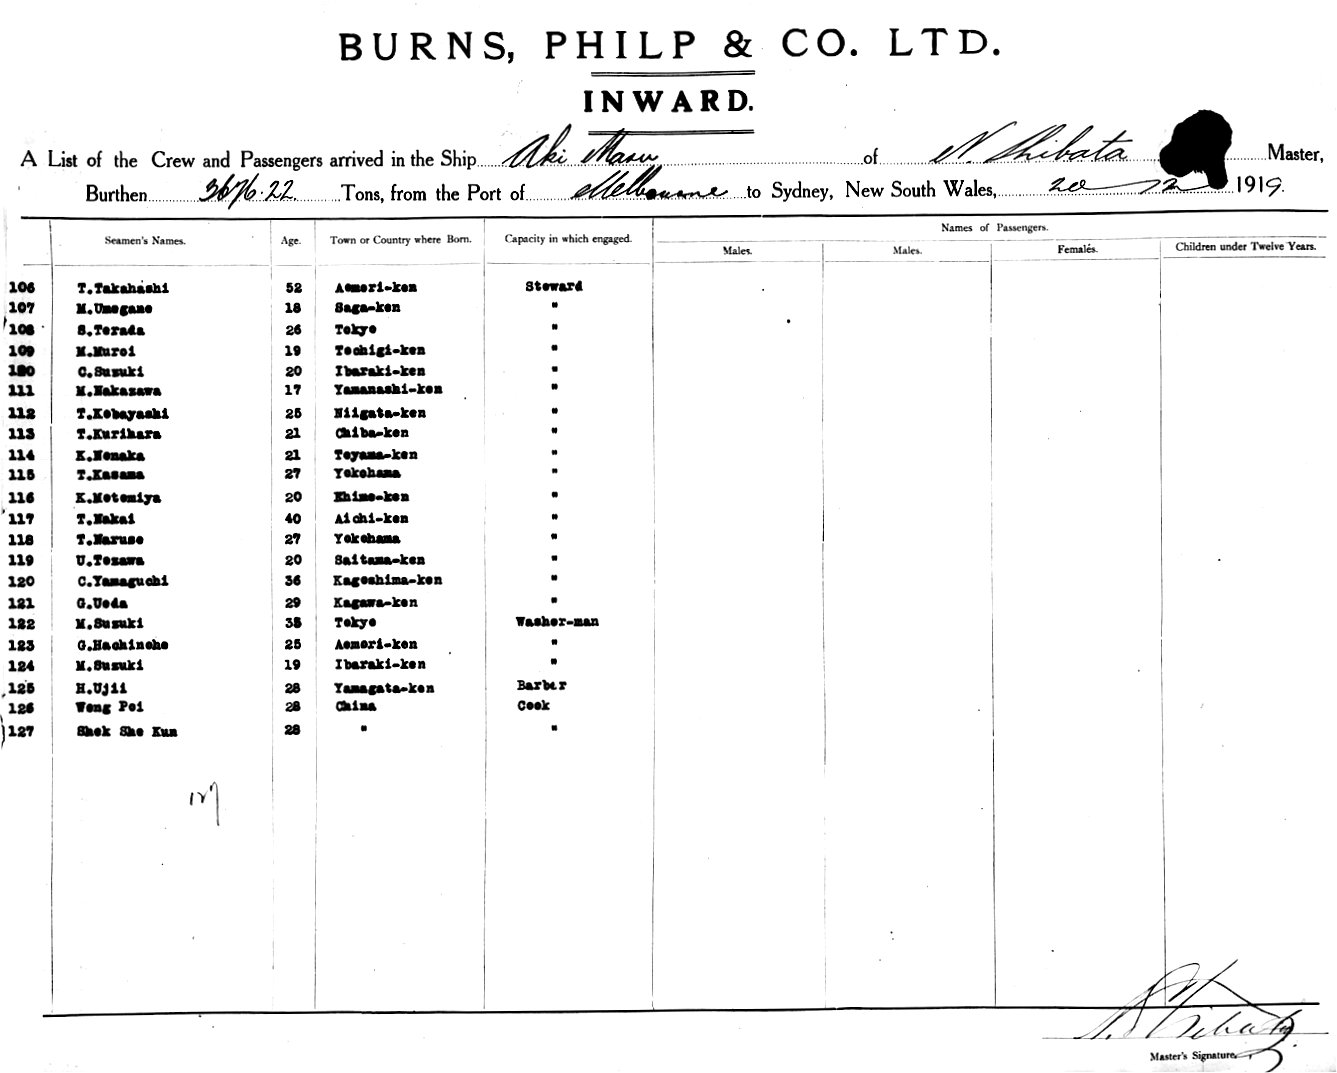 BURNS, PHILP & CO. LTD.
INWARD.
A List of the Crew and Passengers arrived in the Ship Aki Maru of N. Shibata Master,
Burthen 3676.22 Tons, from the Port of Melbourne to Sydney, New South Wales, 20 12 1919.
Seamen's Names. Age. Town or Country where Born. Capacity in which engaged. Names of Passengers.
Males. Males. Females. Children under Twelve Years.
106 T.Takahashi 52 Aomori-ken Steward
107 M.Umegane 18 Saga-ken "
108 S.Terada 26 Tokyo "
109 M.Muroi 19 Tochigi-ken "
110 C.Suzuki 20 Ibaraki-ken "
111 M.Nakazawa 17 Yamanashi-ken "
112 T.Kobayashi 25 Niigata-ken "
113 T.Kurihara 21 Chiba-ken "
114 K.Nonaka 21 Toyama-ken "
115 T.Kasama 27 Yokohama "
116 K.Motomiya 20 Ehime-ken "
117 T.Nakai 40 Aichi-ken "
118 T.Naruse 27 Yokohama "
119 U.Tozawa 20 Saitama-ken "
120 C.Yamaguchi 36 Kagoshima-ken "
121 G.Ueda 29 Kagawa-ken "
122 M.Suzuki 35 Tokyo Washer-man
123 G.Hachinohe 25 Aomori-ken "
124 M.Suzuki 19 Ibaraki-ken "
125 H.Ujii 28 Yamagata-ken Barber
126 Wong Poi 28 China Cook
127 Shek She Kun 28 " "
127
N. Shibata
Master's Signature.